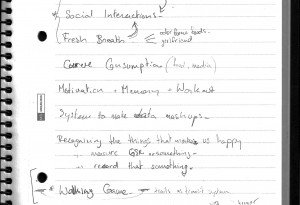 * Social Interactions
Fresh Breath odor foods.
girlfriend
Consumption
Motivation + Memory + Workout
System to make data mashups.
Recognizing the things that makes us happy
- measure something.
- record that something.
* Walking Game - transit system